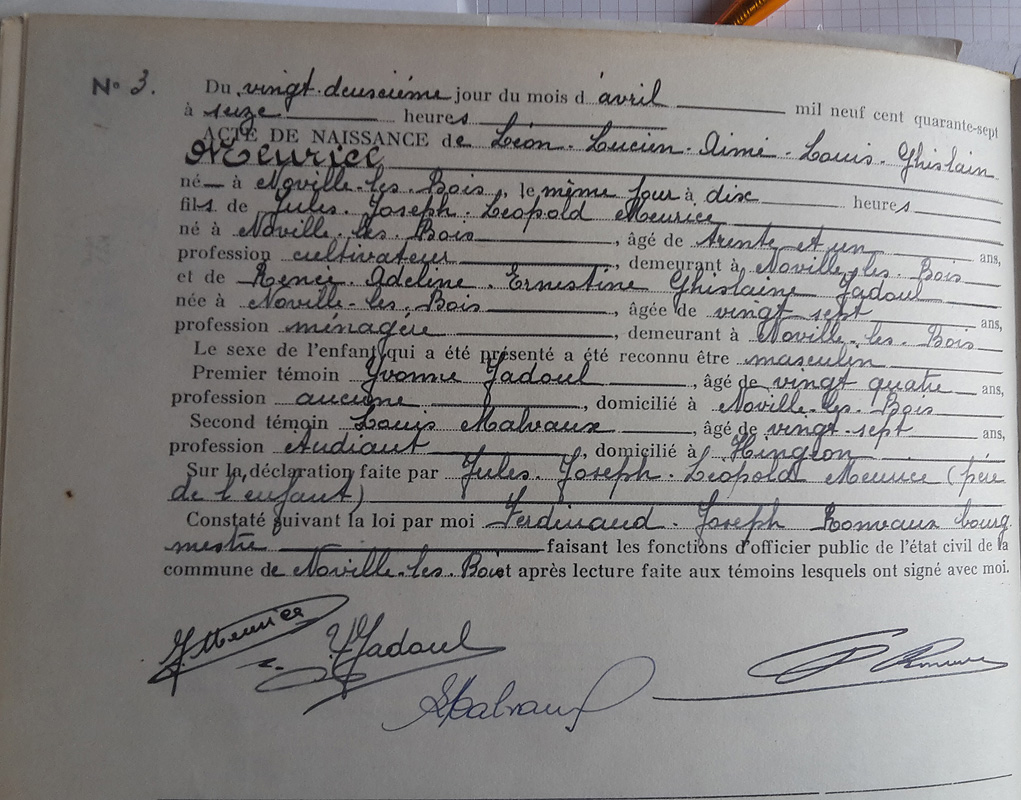 N° 3. Du vingt-deuxième jour du mois d'avril mil neuf cent quarante-sept
à seize heures
ACTE DE NAISSANCE de Léon-Lucien-Aimé-Louis-Ghislain
Meurice
né à Noville-les-Bois, le même jour à dix heures
fils de Jules-Joseph-Léopold Meurice
né à Noville-les-Bois, âgé de trente et un ans,
profession cultivateur, demeurant à Noville-les-Bois
et de Renée-Adeline-Ernestine Ghislaine Jadoul
née à Noville-les-Bois, âgée de vingt sept ans,
profession ménagère, demeurant à Noville-les-Bois
Le sexe de l'enfant qui a été présenté a été reconnu être masculin
Premier témoin Yvonne Jadoul, âgé de vingt quatre ans,
profession aucune, domicilié à Noville-les-Bois
Second témoin Louis Malvaux, âgé de vingt-sept ans,
profession étudiant, domicilié à Hingeon
Sur la déclaration faite par Jules-Joseph-Léopold Meurice (père
de l'enfant)
Constaté suivant la loi par moi Ferdinand-Joseph Romvaux bourg
mestre faisant les fonctions d'officier public de l'état civil de la
commune de Noville-les-Bois et après lecture faite aux témoins lesquels ont signé avec moi.
J Meurice Y Jadoul
LMalvaux